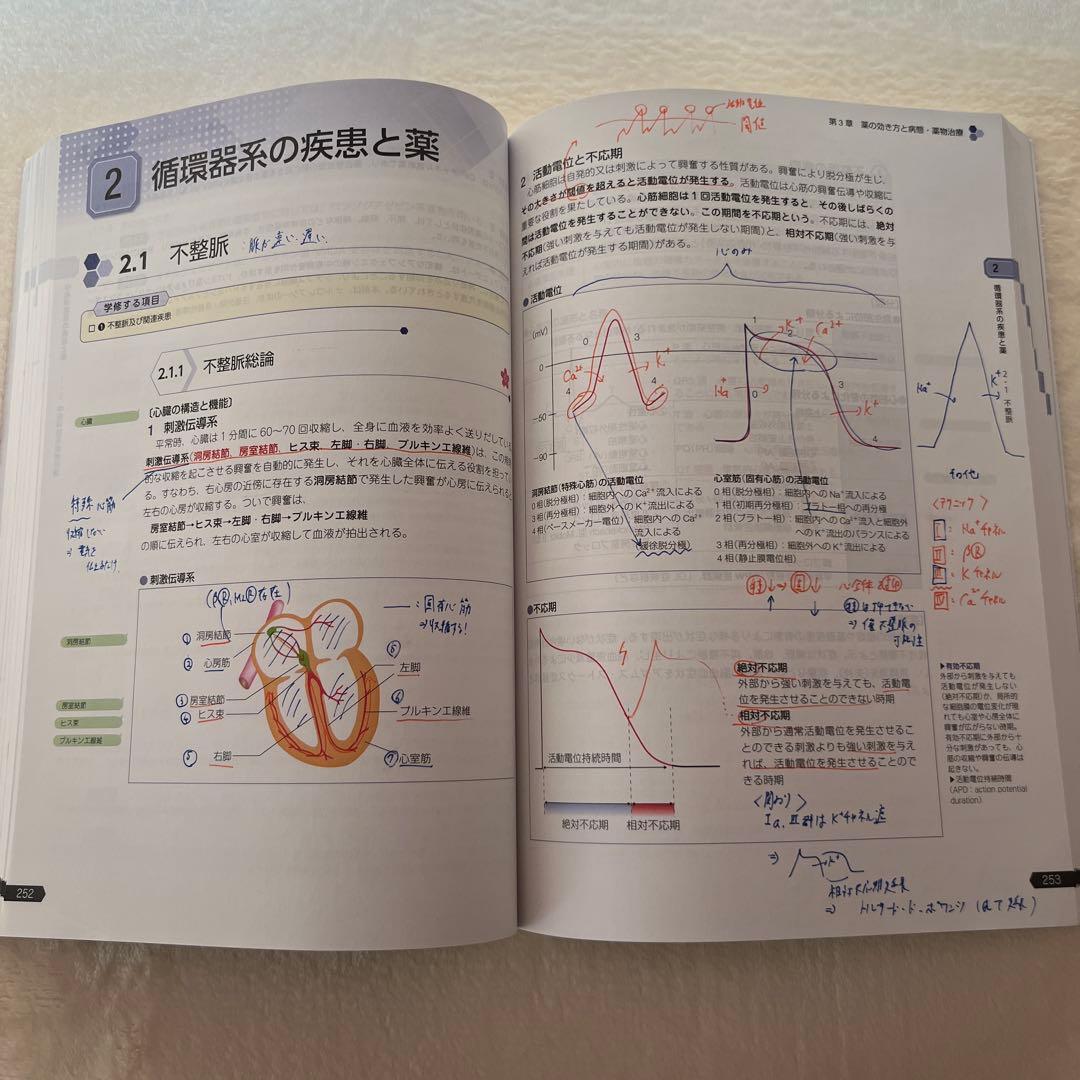 2 循環器系の疾患と薬
2.1 不整脈 : 脈が速い・遅い
学修する項目
□ ❶ 不整脈及び関連疾患
2.1.1 不整脈総論
心臓
〔心臓の構造と機能〕
1 刺激伝導系
平常時，心臓は1分間に60〜70回収縮し，全身に血液を効率よく送りだしている
刺激伝導系(洞房結節，房室結節，ヒス束，左脚・右脚，プルキンエ線維)は，この規則
的な収縮を起こさせる興奮を自動的に発生し，それを心臓全体に伝える役割を担ってい
る。すなわち，右心房の近傍に存在する洞房結節で発生した興奮が心房に伝えられると
左右の心房が収縮する。ついで興奮は，
房室結節→ヒス束→左脚・右脚→プルキンエ線維
の順に伝えられ，左右の心室が収縮して血液が拍出される。
特殊心筋
収縮しない
●刺激伝導系
(βR, M₂R存在)
——: 固有心筋
⇒収縮する!
洞房結節
房室結節
ヒス束
プルキンエ線維
① 洞房結節
② 心房筋
③ 房室結節
④ ヒス束
⑤ 右脚
⑤ 左脚
⑥ プルキンエ線維
⑦ 心室筋
252
第3章 薬の効き方と病態・薬物治療
活動電位
閾値
2 活動電位と不応期
心筋細胞は自発的又は刺激によって興奮する性質がある。興奮により脱分極が生じ，
その大きさが閾値を超えると活動電位が発生する。活動電位は心筋の興奮伝導や収縮に
重要な役割を果たしている。心筋細胞は1回活動電位を発生すると，その後しばらくの
間は活動電位を発生することができない。この期間を不応期という。不応期には，絶対
不応期(強い刺激を与えても活動電位が発生しない期間)と，相対不応期(強い刺激を与
えれば活動電位が発生する期間)がある。
心のみ
●活動電位
(mV)
0
−50
−90
0 3 4 4
Ca²⁺ K⁺
1 2 0 3 4
Na⁺ K⁺ Ca²⁺ K⁺
Na⁺ K⁺
その他
洞房結節(特殊心筋)の活動電位
0相(脱分極相)：細胞内へのCa²⁺流入による
3相(再分極相)：細胞外へのK⁺流出による
4相(ペースメーカー電位)：細胞内へのCa²⁺
流入による
(緩徐脱分極)
心室筋(固有心筋)の活動電位
0相(脱分極相)：細胞内へのNa⁺流入による
1相(初期再分極相)：プラトー相への再分極
2相(プラトー相)：細胞内へのCa²⁺流入と細胞外
へのK⁺流出のバランスによる
3相(再分極相)：細胞外へのK⁺流出による
4相(静止膜電位相)
〈テクニック〉
Ⅰ: Na⁺チャネル
Ⅱ: βR
Ⅲ: Kチャネル
Ⅳ: Ca²⁺チャネル
●不応期
活動電位持続時間
絶対不応期 相対不応期
絶対不応期
外部から強い刺激を与えても，活動電
位を発生させることのできない時期
相対不応期
外部から通常活動電位を発生させるこ
とのできる刺激よりも強い刺激を与え
れば，活動電位を発生させることので
きる時期
〈関わり〉
Ⅰa, Ⅲ群はK⁺チャネル遮
⇒ K⁺
相対不応期延長
⇒ トルサード・ド・ポワンツ (QT延長)
2
循環器系の疾患と薬
2・1 不整脈
▶有効不応期
外部から刺激を与えても
活動電位が発生しない
(絶対不応期)か，局所的
な細胞膜の電位変化が現
れても心室や心房全体に
興奮が広がらない時期。
有効不応期に外部から十
分な刺激があっても，心
筋の収縮や興奮の伝導は
起きない。
▶活動電位持続時間
(APD：action potential
duration)
253